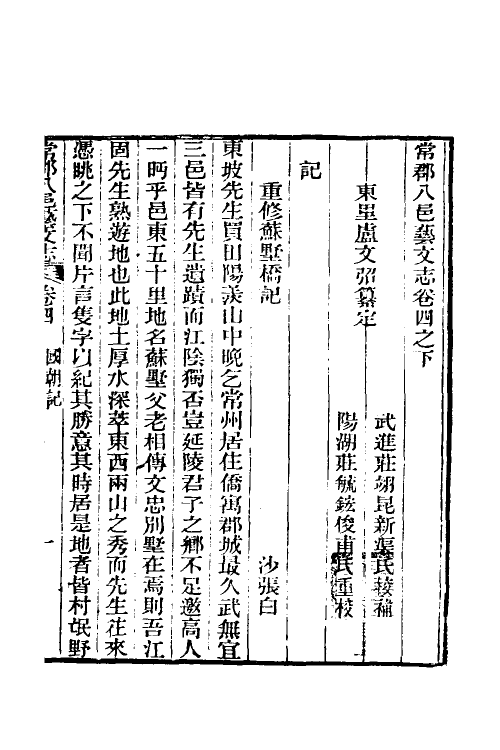 常郡八邑藝文志卷四之下
東里盧文弨纂定
武進莊翊昆新渠氏校補
陽湖莊毓鋐俊甫氏重校
記
重修蘇墅橋記 沙張白
東坡先生買田陽羨山中晚乞常州居住僑寓郡城最久武無宜
三邑皆有先生遺蹟而江陰獨否豈延陵君子之鄉不足邀高人
一眄乎邑東五十里地名蘇墅父老相傳文忠別墅在焉則吾江
固先生熟遊地也此地土厚水深萃東西兩山之秀而先生往來
憑眺之下不聞片言隻字以紀其勝意其時居是地者皆村氓野
常郡八邑藝文志 卷四 國朝記 一